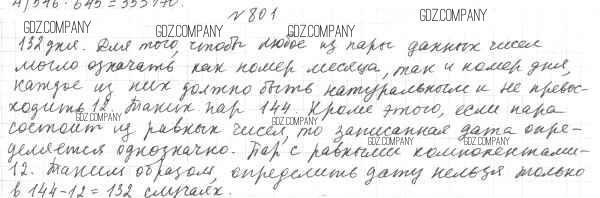 4) 546 · 645 = 353170.
№ 801
GDZ.COMPANY GDZ.COMPANY GDZ.COMPANY
132 дня. Для того, чтобы любое из пары данных чисел
могло означать как номер месяца, так и номер дня,
каждое из них должно быть натуральным и не превос-
ходить 12. Таких пар 144. Кроме этого, если пара
GDZ.COMPANY GDZ.COMPANY
состоит из равных чисел, то записанная дата опре-
GDZ.COMPANY GDZ.COMPANY
деляется однозначно. Пар с равными компонентами-
12. Таким образом, определить дату нельзя только
в 144-12 = 132 случаях.